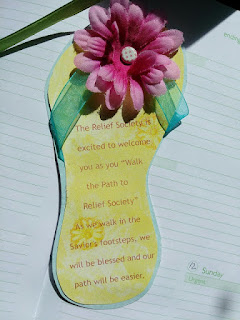 The Relief Society is
excited to welcome
you as you "Walk
the Path to
Relief Society"
As we walk in the
Savior's footsteps, we
will be blessed and our
path will be easier.
12 Sunday